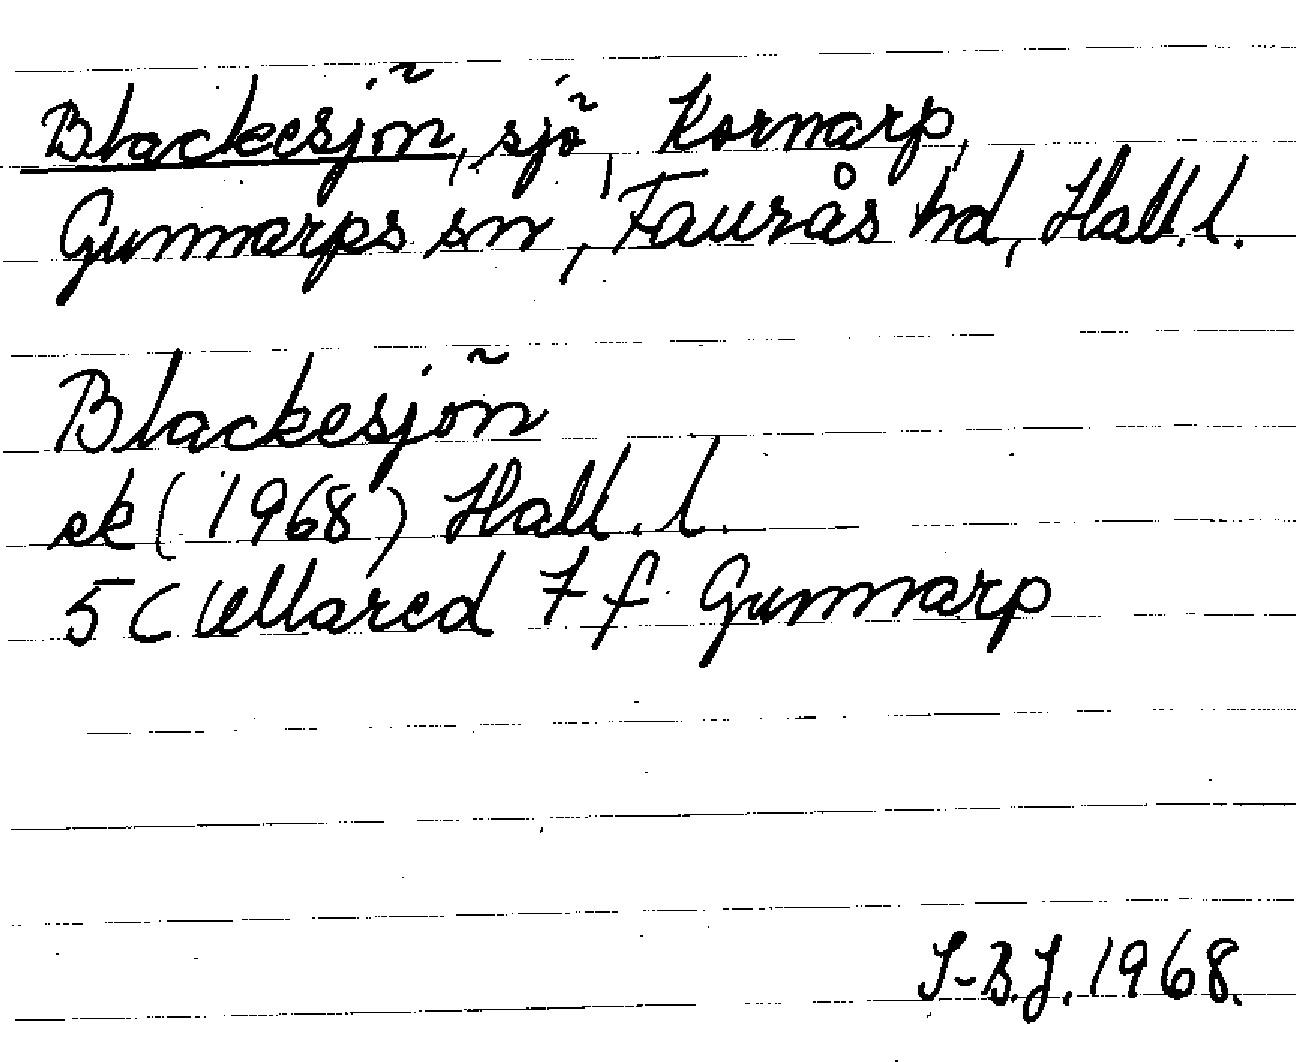 Blackesjön, sjö, Kornarp,
Gunnarps sn, Faurås hd, Hall. l.
Blackesjön
ek (1968) Hall. l.
5C Ullared 7 f Gunnarp
S-B.J. 1968.